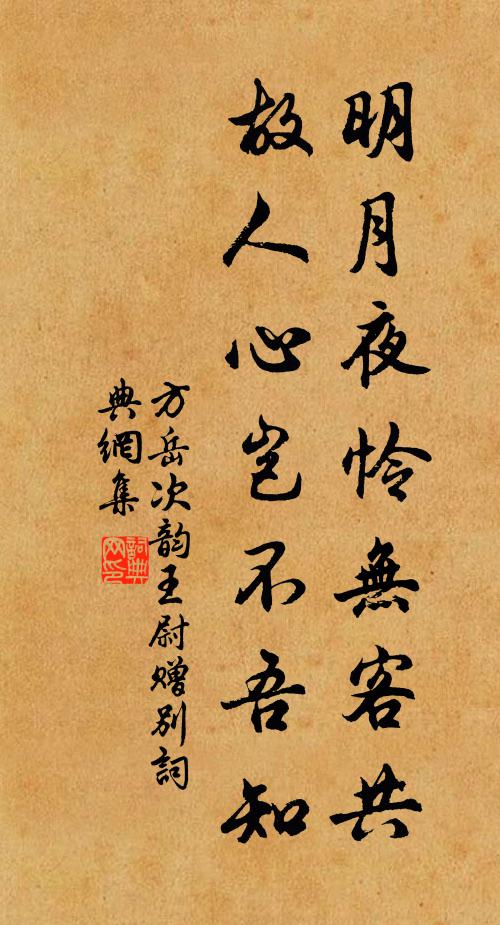 明月夜怜無客共
故人心岂不吾知
方岳次韵王尉赠别詞
典網集
詞典
网印